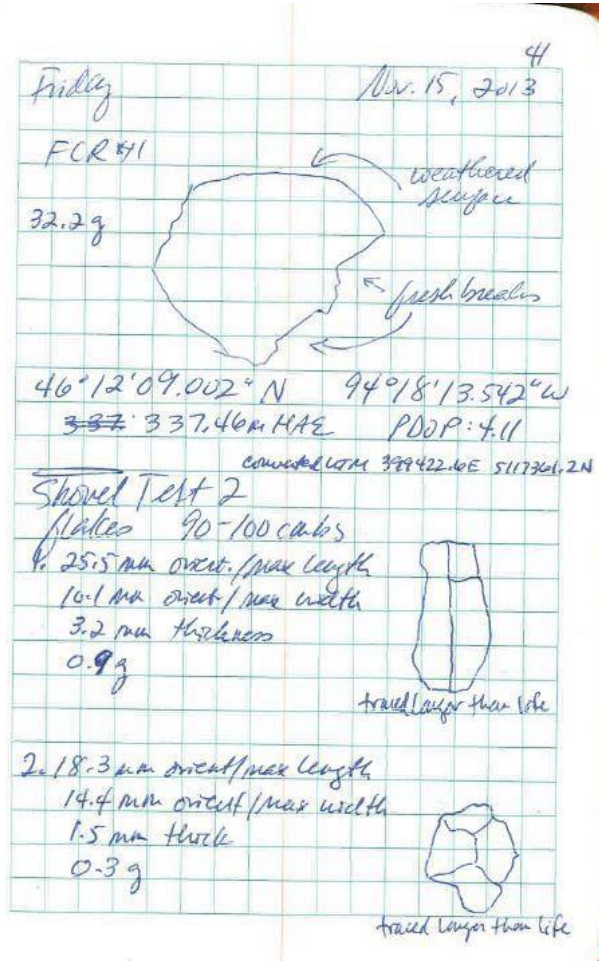 41
Friday Nov. 15, 2013
FCR #1
weathered
surface
32.2g
fresh breaks
46°12'09.002" N 94°18'13.542" W
337 337.46m HAE PDOP: 4.11
converted UTM 399422.6E 5117361.2N
Shovel Test 2
flakes 90-100 cmbs
1. 25.5 mm orient./max length
10.1 mm orient/max width
3.2 mm thickness
0.9g
traced larger than life
2. 18.3 mm orient/max length
14.4 mm orient/max width
1.5 mm thick
0.3g
traced larger than life